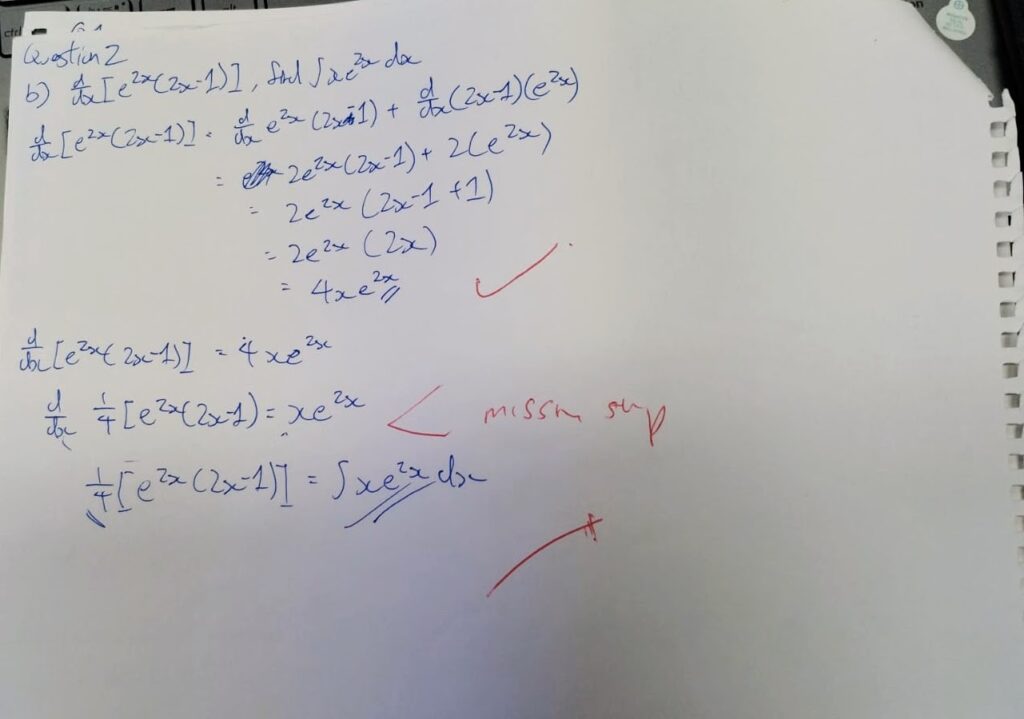 Question 2
b) d/dx [e^2x (2x-1)], find ∫xe^2x dx
d/dx [e^2x (2x-1)] = d/dx e^2x (2x-1) + d/dx (2x-1)(e^2x)
= 2e^2x (2x-1) + 2(e^2x)
= 2e^2x (2x-1+1)
= 2e^2x (2x)
= 4xe^2x
d/dx [e^2x (2x-1)] = 4xe^2x
d/dx 1/4 [e^2x (2x-1) = xe^2x
missing step
1/4 [e^2x (2x-1)] = ∫xe^2x dx